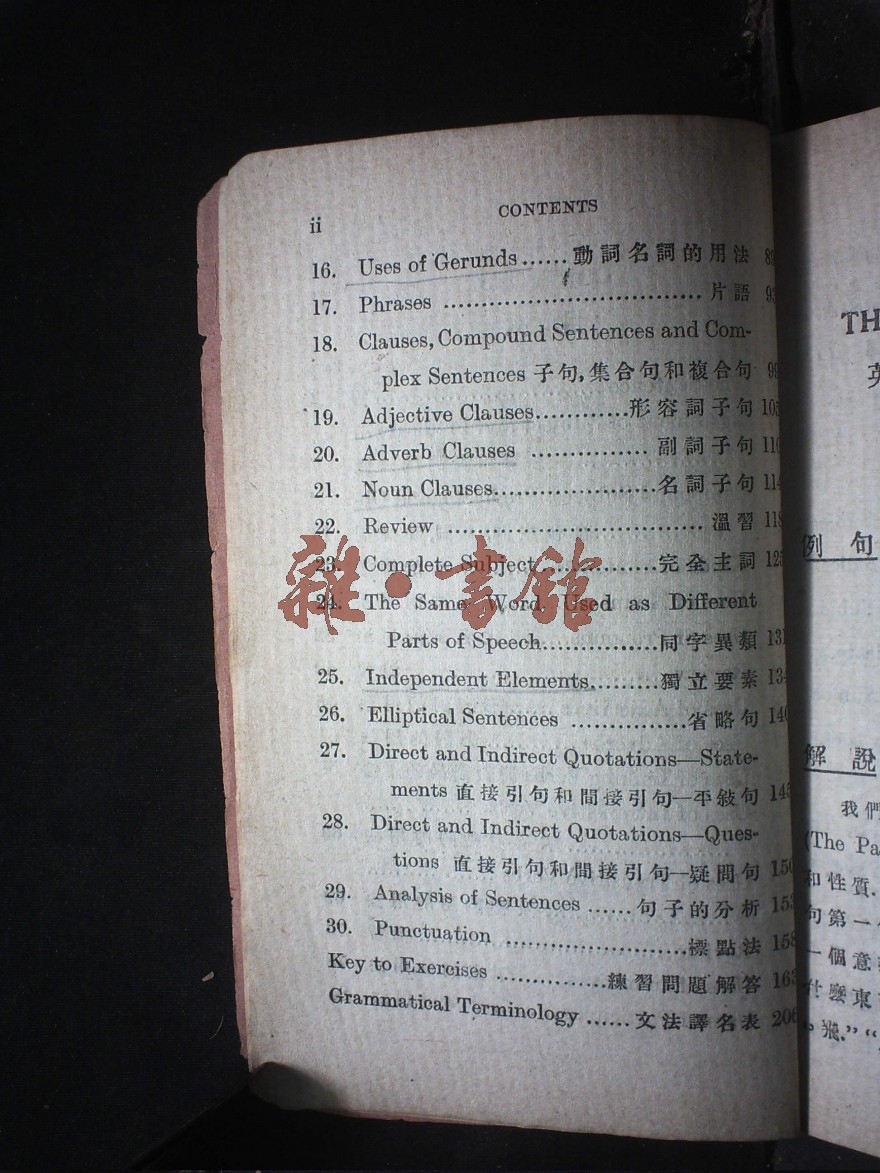 ii
CONTENTS
16. Uses of Gerunds......動詞名詞的用法
17. Phrases ................................. 片語 93
18. Clauses, Compound Sentences and Com-
plex Sentences 子句,集合句和複合句 99
19. Adjective Clauses............形容詞子句 105
20. Adverb Clauses ............... 副詞子句 110
21. Noun Clauses.....................名詞子句 114
22. Review ................................. 溫習 118
23. Complete Subject...............完全主詞 125
24. The Same Word Used as Different
Parts of Speech...............同字異類 131
25. Independent Elements.........獨立要素 134
26. Elliptical Sentences ...............省略句 140
27. Direct and Indirect Quotations—State-
ments 直接引句和間接引句—平敍句 145
28. Direct and Indirect Quotations—Ques-
tions 直接引句和間接引句—疑問句 150
29. Analysis of Sentences ......句子的分析 153
30. Punctuation .......................標點法 158
Key to Exercises ..............練習問題解答 163
Grammatical Terminology ......文法譯名表 206
雜·書館
TH
英
例句
解說
我們
(The Pa
和性質.
句第一
一個意
什麼東